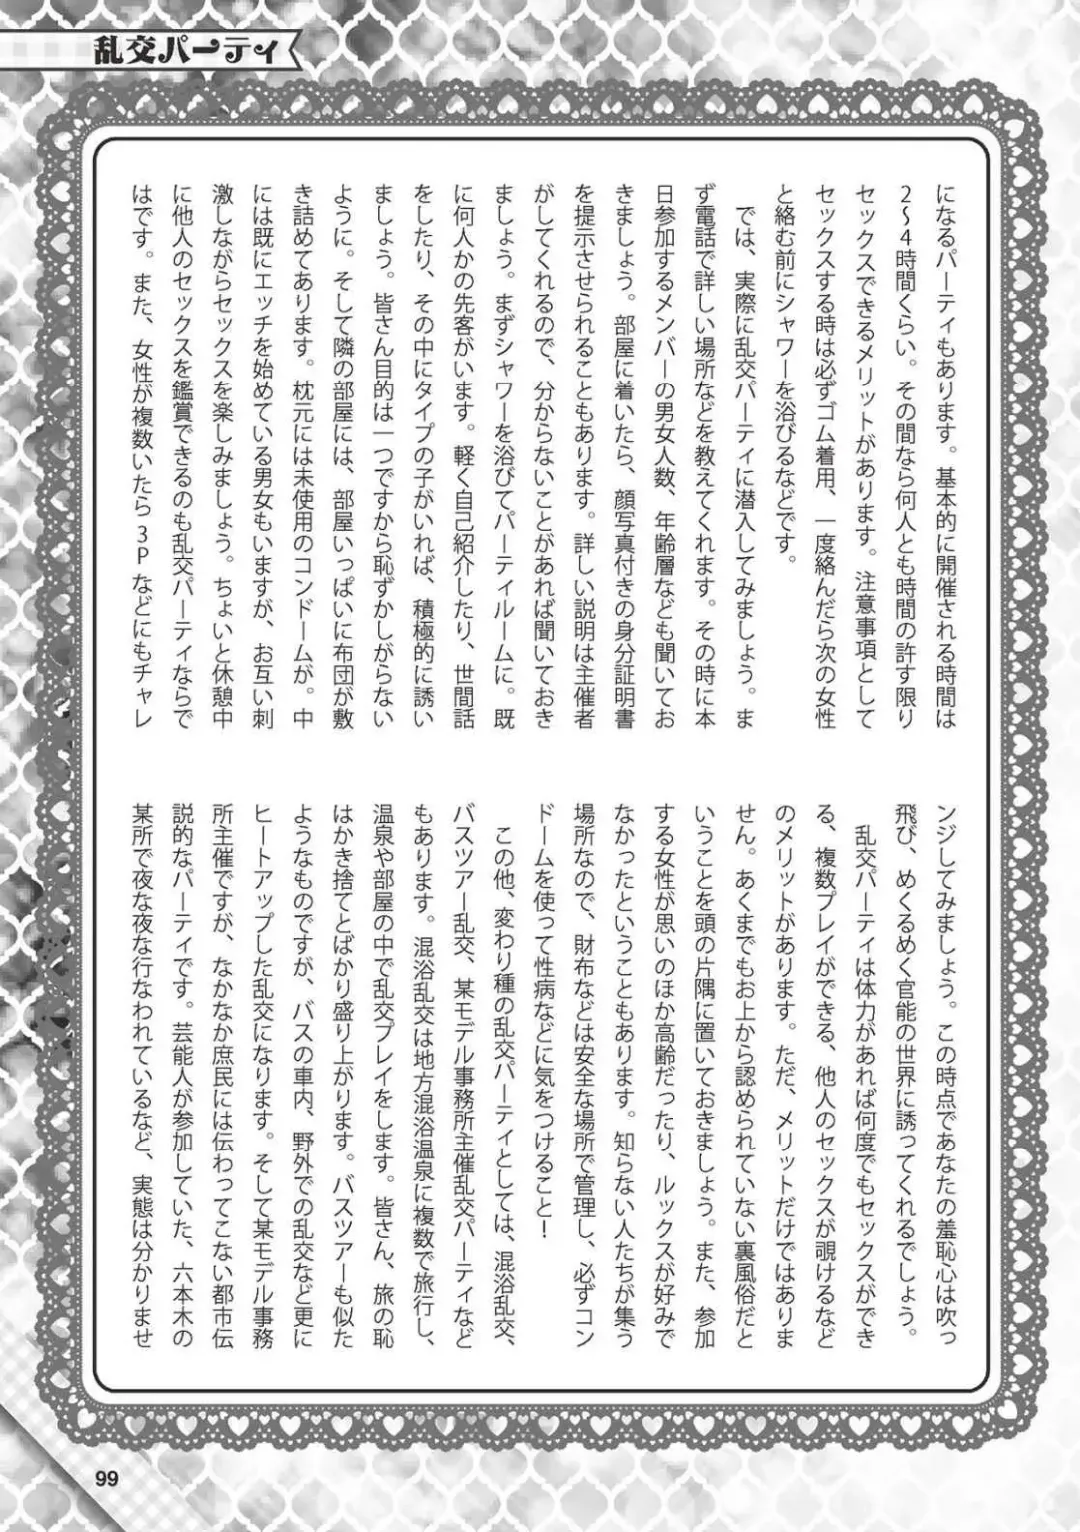 乱交パーティ
になるパーティもあります。基本的に開催される時間は
2〜4時間くらい。その間なら何人とも時間の許す限り
セックスできるメリットがあります。注意事項として
セックスする時は必ずゴム着用、一度絡んだら次の女性
と絡む前にシャワーを浴びるなどです。
では、実際に乱交パーティに潜入してみましょう。ま
ず電話で詳しい場所などを教えてくれます。その時に本
日参加するメンバーの男女人数、年齢層なども聞いてお
きましょう。部屋に着いたら、顔写真付きの身分証明書
を提示させられることもあります。詳しい説明は主催者
がしてくれるので、分からないことがあれば聞いておき
ましょう。まずシャワーを浴びてパーティルームに。既
に何人かの先客がいます。軽く自己紹介したり、世間話
をしたり、その中にタイプの子がいれば、積極的に誘い
ましょう。皆さん目的は一つですから恥ずかしがらない
ように。そして隣の部屋には、部屋いっぱいに布団が敷
き詰めてあります。枕元には未使用のコンドームが。中
には既にエッチを始めている男女もいますが、お互い刺
激しながらセックスを楽しみましょう。ちょいと休憩中
に他人のセックスを鑑賞できるのも乱交パーティならで
はです。また、女性が複数いたら3Pなどにもチャレ
ンジしてみましょう。この時点であなたの羞恥心は吹っ
飛び、めくるめく官能の世界に誘ってくれるでしょう。
乱交パーティは体力があれば何度でもセックスができ
る、複数プレイができる、他人のセックスが覗けるなど
のメリットがあります。ただ、メリットだけではありま
せん。あくまでもお上から認められていない裏風俗だと
いうことを頭の片隅に置いておきましょう。また、参加
する女性が思いのほか高齢だったり、ルックスが好みで
なかったということもあります。知らない人たちが集う
場所なので、財布などは安全な場所で管理し、必ずコン
ドームを使って性病などに気をつけること！
この他、変わり種の乱交パーティとしては、混浴乱交、
バスツアー乱交、某モデル事務所主催乱交パーティなど
もあります。混浴乱交は地方混浴温泉に複数で旅行し、
温泉や部屋の中で乱交プレイをします。皆さん、旅の恥
はかき捨てとばかり盛り上がります。バスツアーも似た
ようなものですが、バスの車内、野外での乱交など更に
ヒートアップした乱交になります。そして某モデル事務
所主催ですが、なかなか庶民には伝わってこない都市伝
説的なパーティです。芸能人が参加していた、六本木の
某所で夜な夜な行なわれているなど、実態は分かりませ
99